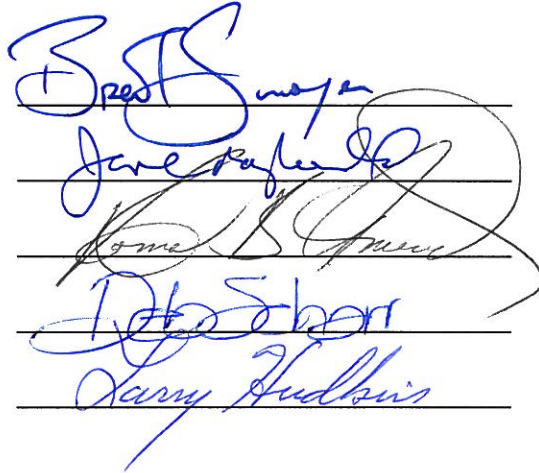 Brent Smoyer
Jane Raybould
Roma B Amundson
Deb Schorr
Larry Hudkins